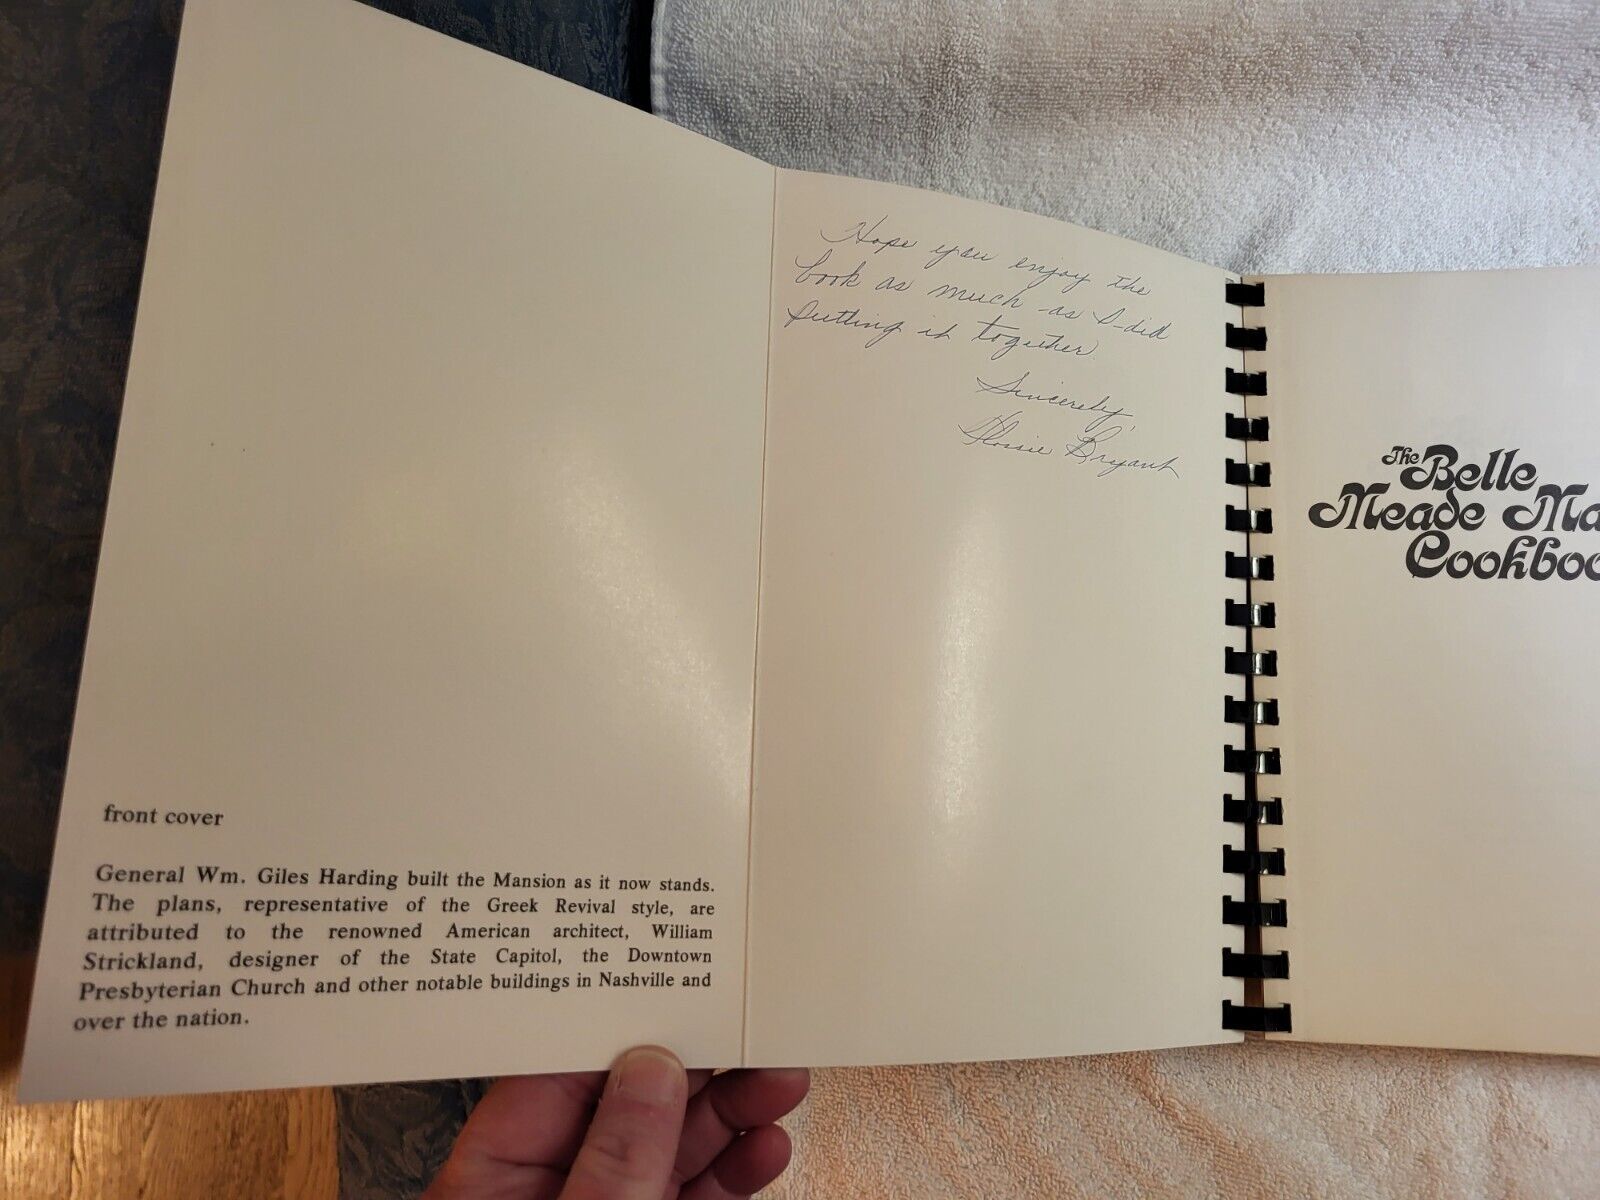 front cover
General Wm. Giles Harding built the Mansion as it now stands.
The plans, representative of the Greek Revival style, are
attributed to the renowned American architect, William
Strickland, designer of the State Capitol, the Downtown
Presbyterian Church and other notable buildings in Nashville and
over the nation.
Hope you enjoy the
book as much as I did
putting it together.
Sincerely,
Flossie Bryant
The Belle
Meade Ma
Cookboo